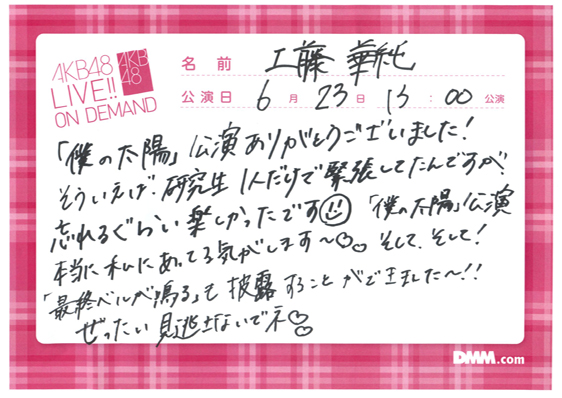 AKB48
LIVE!!
ON DEMAND
AKB
48
名前 工藤 華純
公演日 6月23日 13:00公演
「僕の太陽」公演ありがとうございました!
そういえば、研究生1人だけで緊張してたんですが、
忘れるぐらい楽しかったです 「僕の太陽」公演
本当に私にあってる気がします〜♡♡。そして、そして!
「最終ベルが鳴る」も披露することができましたー!!
ぜったい見逃さないでネ♡♡
DMM.com